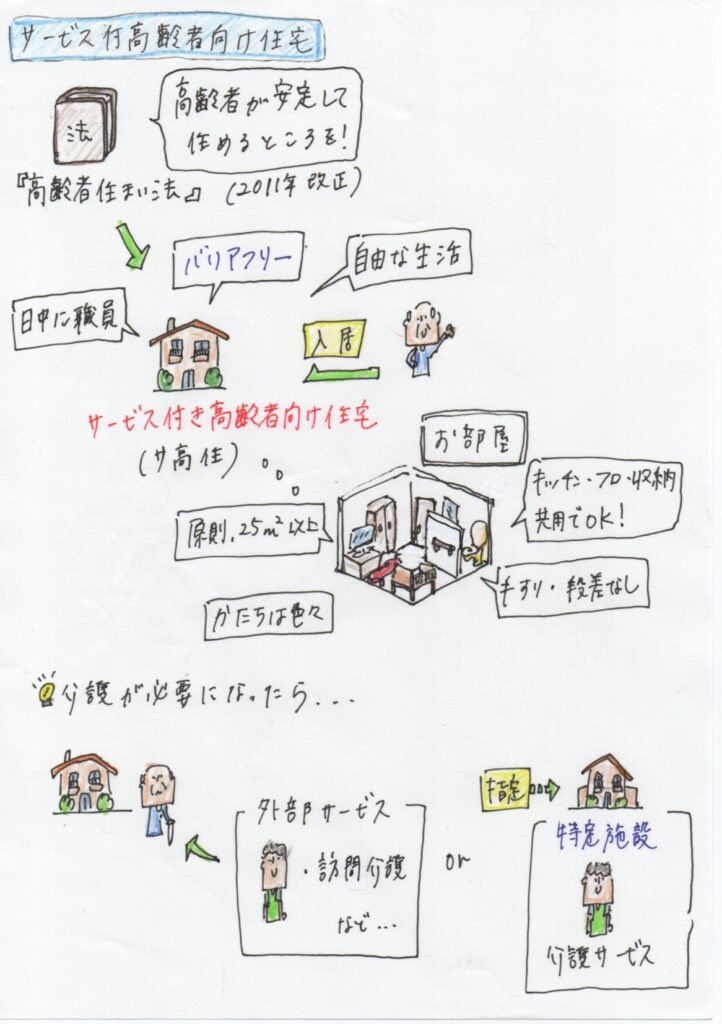 サービス付高齢者向け住宅
法
高齢者が安定して
住めるところを!
『高齢者住まい法』 (2011年改正)
バリアフリー
自由な生活
日中に職員
入居
サービス付き高齢者向け住宅
(サ高住)
お部屋
キッチン・フロ・収納
共用でOK!
原則、25m²以上
手すり・段差なし
かたちは色々
介護が必要になったら...
指定
外部サービス
・訪問介護
など...
or
特定施設
介護サービス